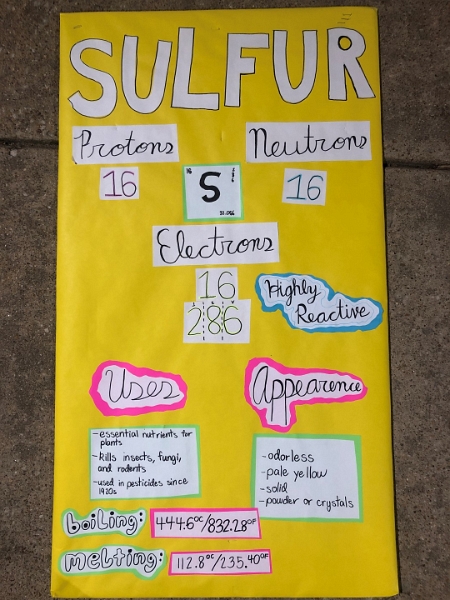 SULFUR
Protons
Neutrons
16
16
S
16
Electrons
16
2 8 6
Highly
Reactive
Uses
Appearence
-essential nutrients for
plants
-kills insects, fungi,
and rodents
-used in pesticides since
1920s
-odorless
-pale yellow
-solid
-powder or crystals
boiling: 444.6°C/832.28°F
melting: 112.8°C/235.40°F